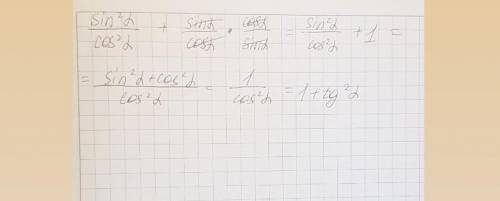 sin²α/cos²α + sinα/cosα · cosα/sinα = sin²α/cos²α + 1 =
= sin²α+cos²α/cos²α = 1/cos²α = 1+tg²α